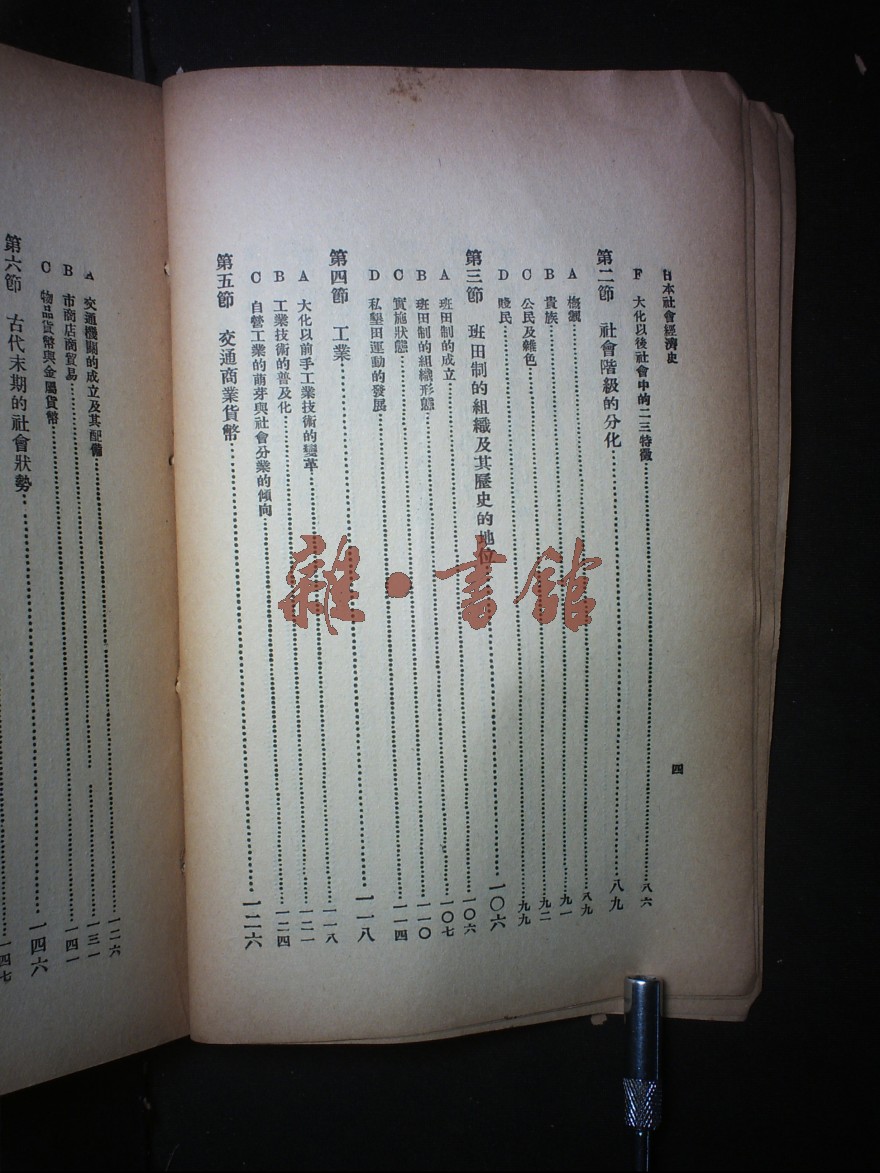 日本社會經濟史
四
F 大化以後社會中的二三特徵……八六
第二節 社會階級的分化……八九
A 概觀……八九
B 貴族……九一
C 公民及雜色……九二
D 賤民……九九
第三節 班田制的組織及其歷史的地位……一〇六
A 班田制的成立……一〇六
B 班田制的組織形態……一〇七
C 實施狀態……一一〇
D 私墾田運動的發展……一一四
第四節 工業……一一八
A 大化以前手工業技術的變革……一一八
B 工業技術的普及化……一二一
C 自營工業的萌芽與社會分業的傾向……一二四
第五節 交通商業貨幣……一二六
A 交通機關的成立及其配備……一二六
B 市商店商貿易……一三一
C 物品貨幣與金屬貨幣……一四一
第六節 古代末期的社會狀勢……一四六
一四七
雜·書館